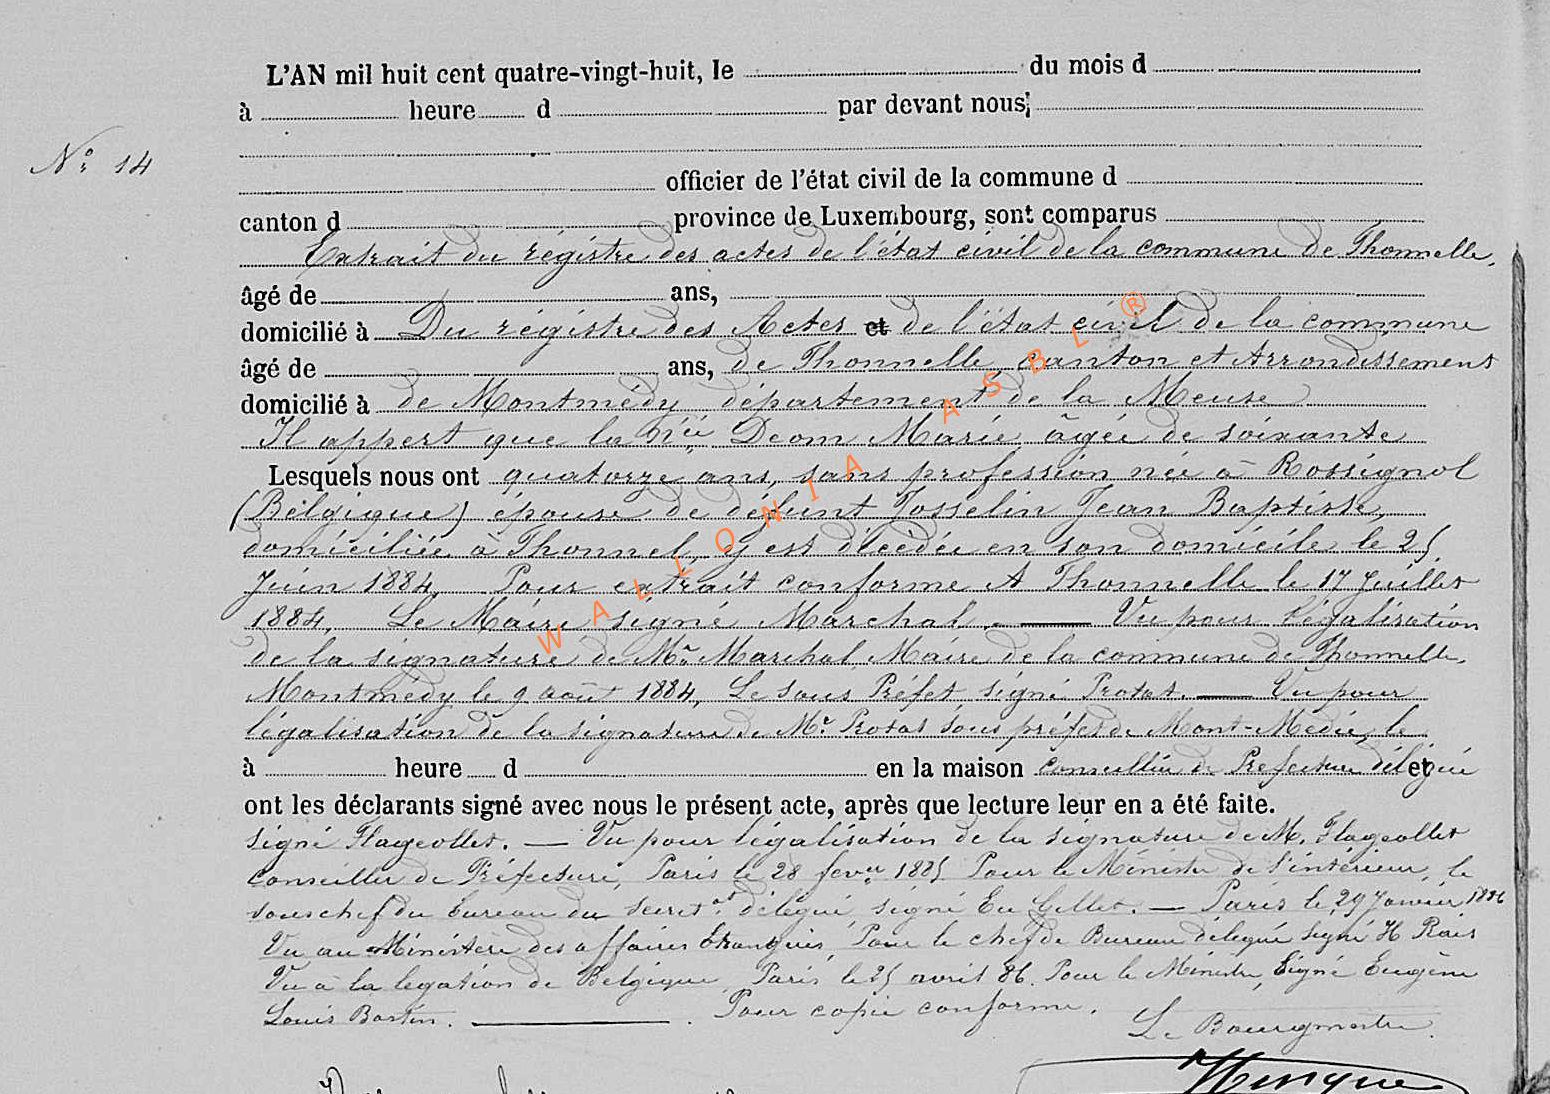 L'AN mil huit cent quatre-vingt-huit, le du mois d
à heure d par devant nous,
N° 14
officier de l'état civil de la commune d
canton d province de Luxembourg, sont comparus
Extrait du régistre des actes de l'état civil de la commune de Thonnelle.
âgé de ans,
domicilié à Du régistre des Actes et de l'état civil de la commune
âgé de ans, de Thonnelle, canton et Arrondissement
domicilié à de Montmédy, département de la Meuse
Il appert que la née Deom Marie âgée de soixante
Lesquels nous ont quatorze ans, sans profession née à Rossignol
(Bélgique) épouse de défunt Josselin Jean Baptiste,
domiciliée à Thonnel, y est décédée en son domicile le 25
Juin 1884, Pour extrait conforme A Thonnelle le 17 Juillet
1884, Le Maire signé Marchal. — Vu pour légalisation
de la signature de Mr Marchal Maire de la commune de Thonnelle,
Montmédy le 9 août 1884, Le sous Préfet signé Protat. — Vu pour
légalisation de la signature de Mr Protat sous préfet de Mont-Medie, le
à heure d en la maison conseiller de Prefecture délégué et
ont les déclarants signé avec nous le présent acte, après que lecture leur en a été faite.
signé Flageollet. — Vu pour légalisation de la signature de M. Flageollet
conseiller de Préfecture, Paris le 28 fevr 1885 Pour le Ministre de l'intérieur, le
sous chef du bureau du secret.at délégué, signé Eu Gillet. — Paris le 29 Janvier 1886
Vu au Ministère des affaires Etrangères, Pour le chef de Bureau délegué signé H Rais
Vu à la legation de Belgique, Paris le 25 avril 86. Pour le Ministre, Signé Eugène
Louis Bastin. — Pour copie conforme.
Le Bourgmestre.
WALLONIA ASBL ®